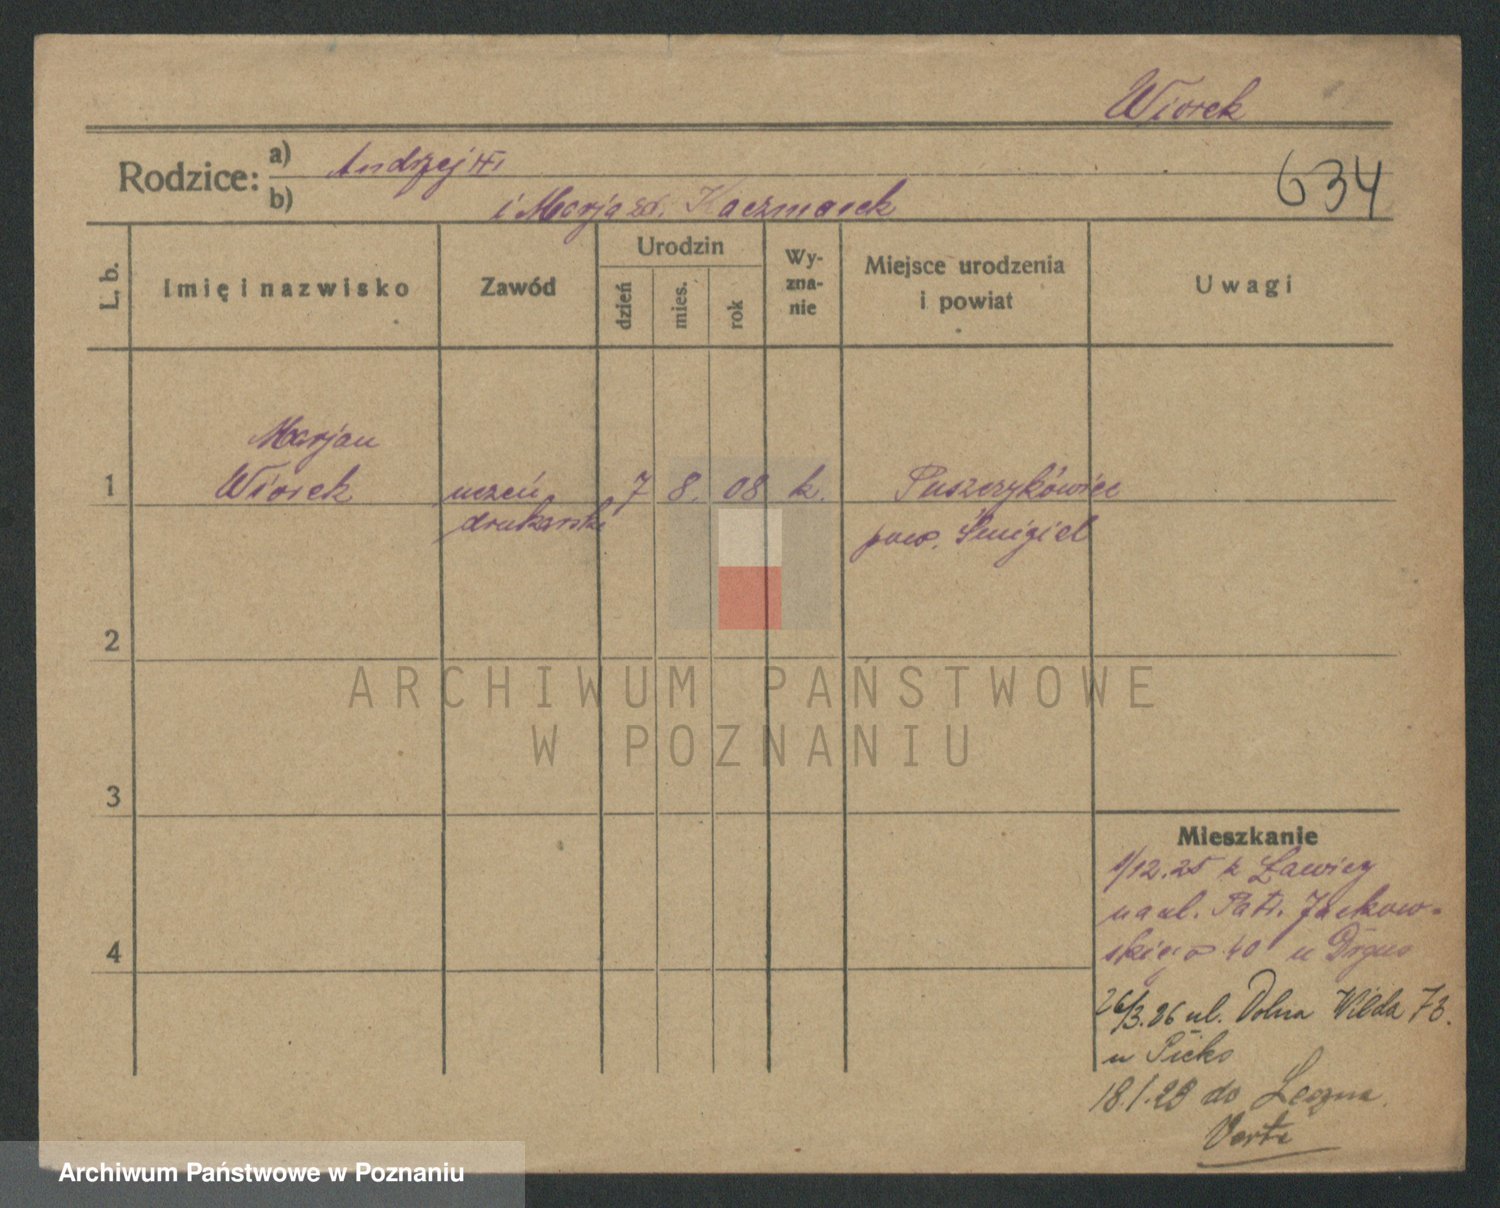 Wiorek
Rodzice:
a) Andrzej
b) i Marja zd. Kaczmarek
634
L. b.
Imię i nazwisko
Zawód
Urodzin
dzień
mies.
rok
Wy-
zna-
nie
Miejsce urodzenia
i powiat
Uwagi
Marjan
1 Wiorek uczeń 7 8. 08 k. Puszczykówiec
drukarski pow. Śmigiel
2
3
4
Mieszkanie
1/12.25 z Ławicy
na ul. Patr. Jackow-
skiego 40 u
26/3.26 ul. Dolna Wilda 73.
u
18.1.28 do
Verte
ARCHIWUM PAŃSTWOWE
W POZNANIU
Archiwum Państwowe w Poznaniu